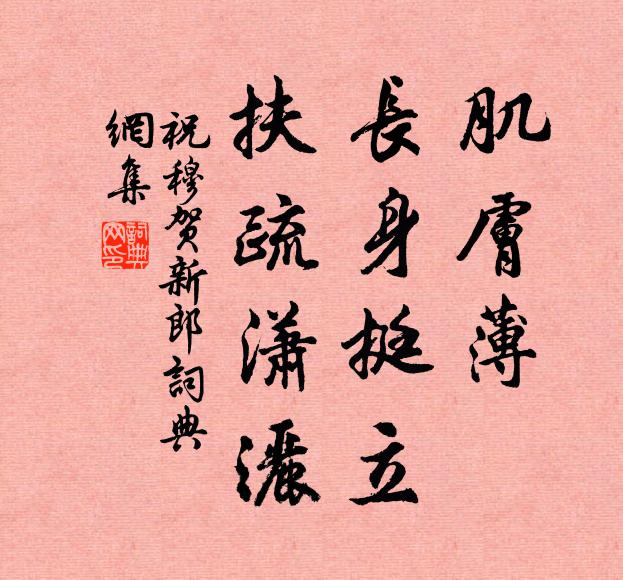 肌膚薄
長身挺立
扶疏瀟灑
祝穆賀新郎詞典
網集
詞典
网印